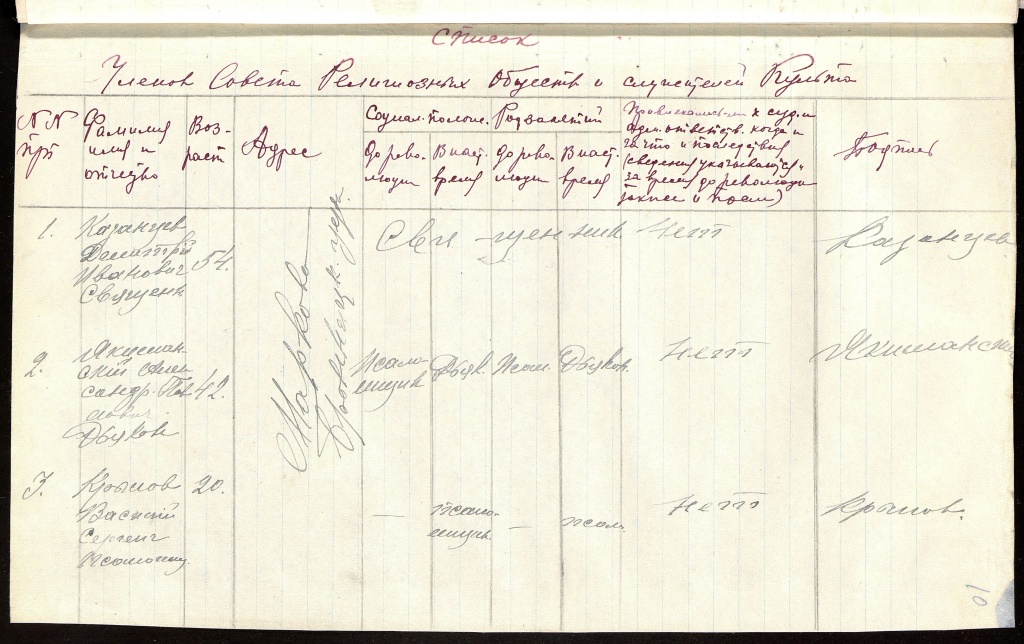 Список
Членов Совета Религиозных Обществ и служителей Культа
NN
п/п
Фамилия
имя и
отчество
Воз-
раст
Адрес
Социал. полож.
До рево-
люции
В наст.
время
Род занятий
до рево-
люции
В наст.
время
Привлекались-ли к суд. и
адм. ответств. когда и
за что и последствия
(сведения указываются
за время до революции
так же и после)
Подпись
1.
Казанцев
Дмитрий
Иванович
Священ
54.
Марково
Свя-щенник
нет
Казанцев
2.
Якиман-
ский Алек
сандр. Пав
лович
Дьякон
42.
Псалом-
щик
Дьяк.
Псал.
Дьякон.
нет
Якиманский
3.
Крылов
Василий
Сергеич
псаломщ.
20.
—
псалом-
щик
—
псал.
нет
Крылов.
10